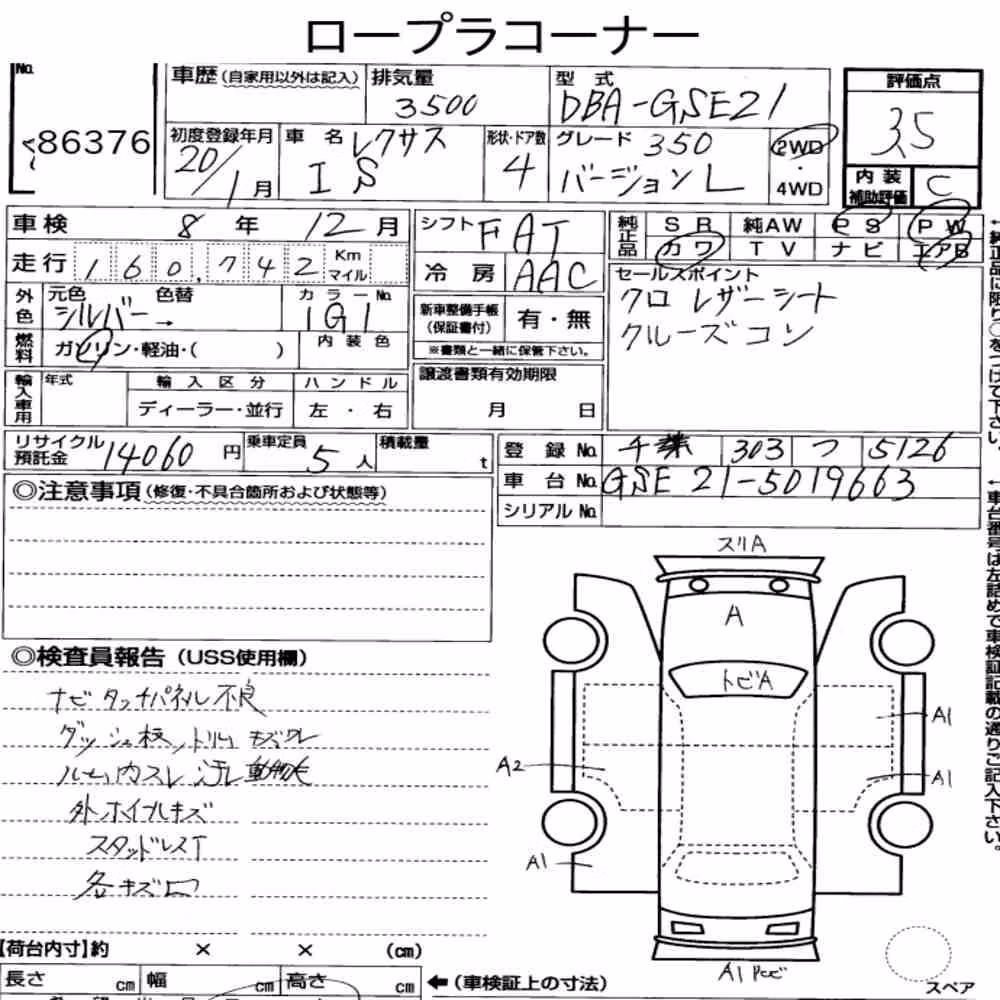 ロープラコーナー
No. 86376
車歴 (自家用以外は記入) 排気量 3500 型式 DBA-GSE21
評価点 3.5
初度登録年月 20/1月 車名 レクサス IS 形状・ドア数 4 グレード 350 バージョンL 2WD・4WD
内装補助評価 C
車検 8年 12月 シフト FAT
純正品 SR 純AW PS PW
カワ TV ナビ エアB
走行 160,742 Km マイル 冷房 AAC
セールスポイント
クロ レザーシート
クルーズコン
外色 元色 シルバー→ 色替 カラーNo. 1G1
新車整備手帳 (保証書付) 有・無
※書類と一緒に保管下さい。
燃料 ガソリン・軽油・( ) 内装色
輸入車用 年式 輸入区分 ハンドル
ディーラー・並行 左・右
譲渡書類有効期限
月 日
リサイクル預託金 14060円 乗車定員 5人 積載量 t
登録No. 千葉 303 つ 5126
車台No. GSE21-5019663
シリアルNo.
◎注意事項 (修復・不具合箇所および状態等)
◎検査員報告 (USS使用欄)
ナビタッチパネル不良
ダッシュ枝、トリムキズワレ
ルーム内スレ 汚レ
外ホイルキズ
スタッドレスT
各キズ凹
スリA
A
トビA
A1
A2
A1
A1
A1 Pセビ
スペア
【荷台内寸】約 × × (cm)
長さ cm 幅 cm 高さ cm
←(車検証上の寸法)
←純正品に限り○をつけて下さい。
←車台番号は左詰めで車検証記載の通りご記入下さい。